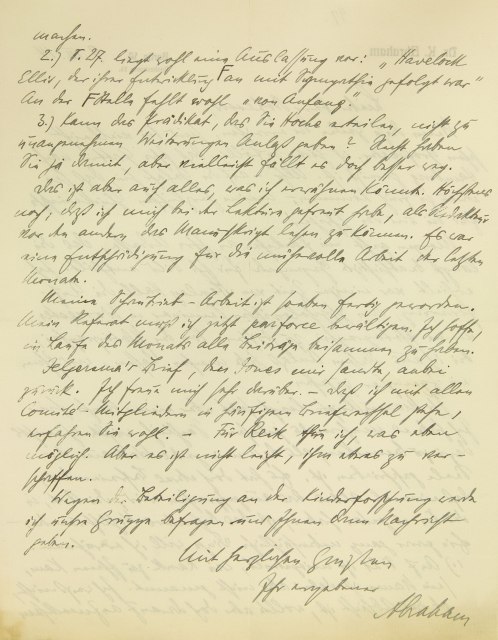 machen.
2.) S. 27. liegt wohl eine Auslassung vor: „Havelock
Ellis, der ihrer Entwicklung Γ an mit Sympathie gefolgt war"
An der Γ Stelle fehlt wohl „von Anfang"
3.) Kann das Prädikat, das Sie Hoche erteilen, nicht zu
unangenehmen Weiterungen Anlaß geben? Recht haben
Sie ja damit, aber vielleicht fällt es doch besser weg.
Das ist aber auch alles, was ich erwähnen könnte. Höchstens
noch, daß ich mich bei der Lektüre gefreut habe, als Redakteur
vor den andern das Manuskript lesen zu können. Es war
eine Entschädigung für die mühevolle Arbeit der letzten
Monate.
Meine - Arbeit ist soeben fertig geworden.
Mein Referat muß ich jetzt parforce bewältigen. Ich hoffe,
im Laufe des Monats alle Beiträge beisammen zu haben.
Jelgersma's Brief, den Jones mir sandte, anbei
zurück. Ich freue mich sehr darüber. – Daß ich mit allen
Comité-Mitgliedern in häufigem Briefwechsel stehe,
erfahren Sie wohl. – Für Reik thue ich, was eben
möglich. Aber es ist nicht leicht, ihm etwas zu ver-
schaffen.
Wegen der Beteiligung an der Kinderforschung werde
ich unsre Gruppe befragen und Ihnen dann Nachricht
geben.
Mit herzlichen Grüßen
Ihr ergebener
Abraham